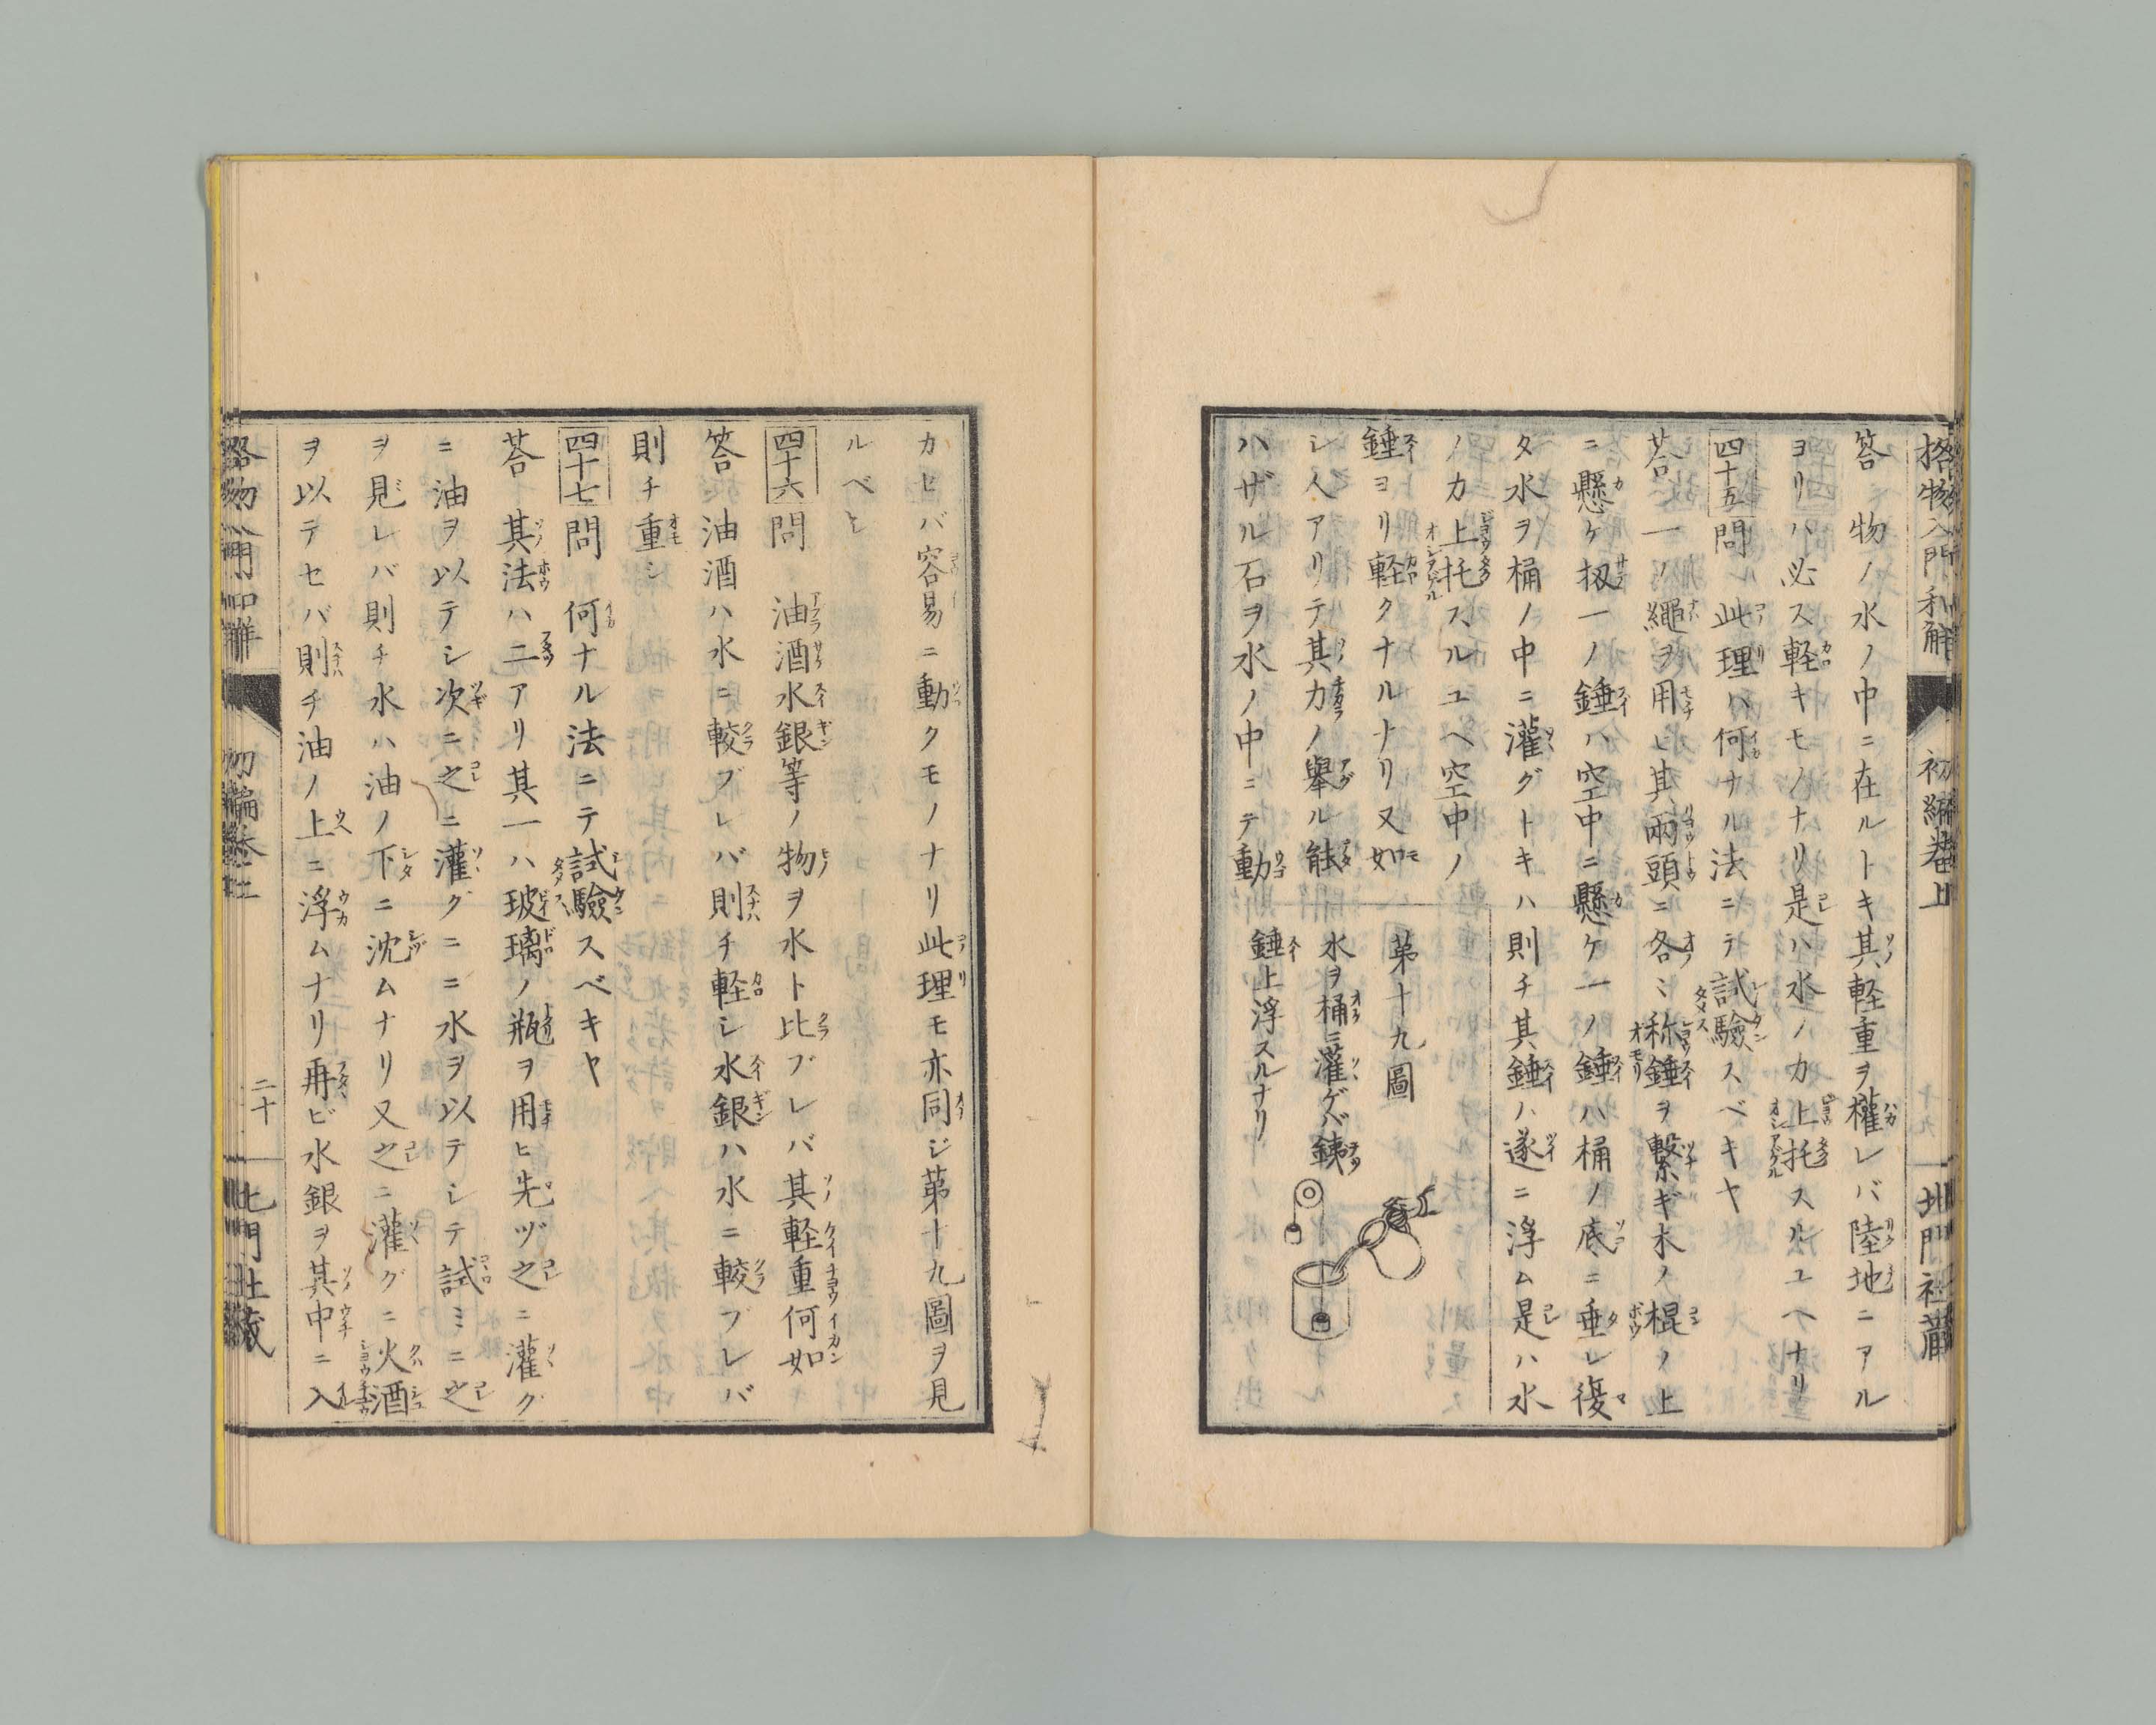 格物入門和解 初編巻上 十九 北門社蔵
答 物ノ水ノ中ニ在ルトキ其軽重ヲ權レバ陸地ニアル
ヨリハ必ス軽キモノナリ是ハ水ノ力上托スルユヘナリ
四十五 問 此理ハ何ナル法ニテ試驗スベキヤ
荅 一ノ繩ヲ用ヒ其兩頭ニ各〻称錘ヲ繋ギ木ノ棍ノ上
ニ懸ケ扨一ノ錘ハ空中ニ懸ケ一ノ錘ハ桶ノ底ニ垂レ復
タ水ヲ桶ノ中ニ灌グトキハ則チ其錘ハ遂ニ浮ム是ハ水
ノ力上托スルユヘ空中ノ
錘ヨリ軽クナルナリ又如
シ人アリテ其力ノ擧ル能
ハザル石ヲ水ノ中ニテ動
第十九圖
水ヲ桶ニ灌ゲバ銕
錘上浮スルナリ
カセバ容易ニ動クモノナリ此理モ亦同ジ第十九圖ヲ見
ルベシ
四十六 問 油酒水銀等ノ物ヲ水ト比ブレバ其軽重何如
答 油酒ハ水ニ較ブレバ則チ軽シ水銀ハ水ニ較ブレバ
則チ重シ
四十七 問 何ナル法ニテ試驗スベキヤ
荅 其法ハ二アリ其一ハ玻璃ノ瓶ヲ用ヒ先ヅ之ニ灌グ
ニ油ヲ以テシ次ニ之ニ灌グニ水ヲ以テシテ試ミニ之
ヲ見レバ則チ水ハ油ノ下ニ沈ムナリ又之ニ灌グニ火酒
ヲ以テセバ則チ油ノ上ニ浮ムナリ再ビ水銀ヲ其中ニ入
格物入門和解 初編巻上 二十 北門社蔵